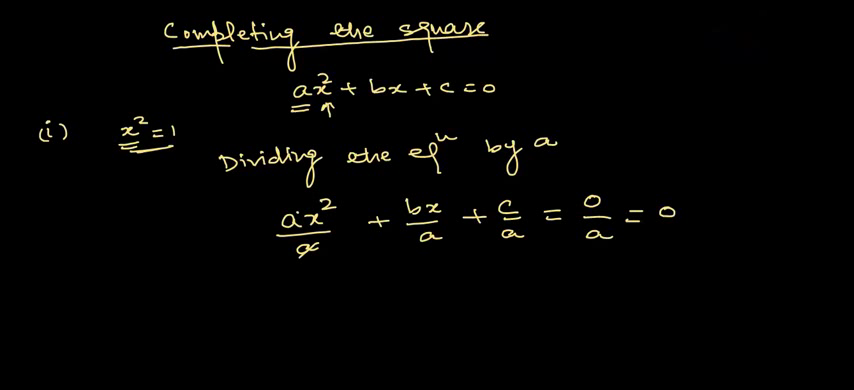 Completing the square
ax² + bx + c = 0
(i) x² = 1
Dividing the eqⁿ by a
ax²/a + bx/a + c/a = 0/a = 0